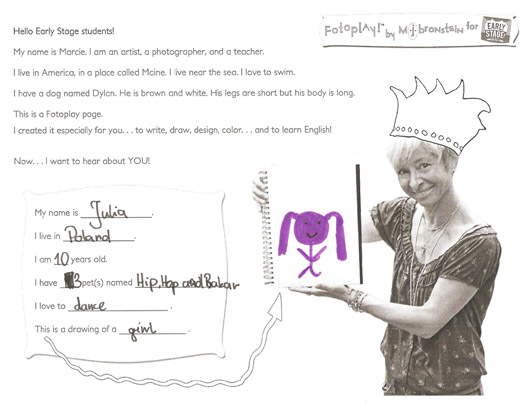 Hello Early Stage students!
Fotoplay!™ by Mjbronstein for EARLY STAGE
My name is Marcie. I am an artist, a photographer, and a teacher.
I live in America, in a place called Maine. I live near the sea. I love to swim.
I have a dog named Dylan. He is brown and white. His legs are short but his body is long.
This is a Fotoplay page.
I created it especially for you. . . to write, draw, design, color. . . and to learn English!
Now. . . I want to hear about YOU!
My name is Julia.
I live in Poland.
I am 10 years old.
I have 3 pet(s) named Hip, Hop and Bakar
I love to dance.
This is a drawing of a girl.